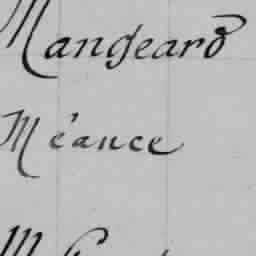 Mangeard
Méance